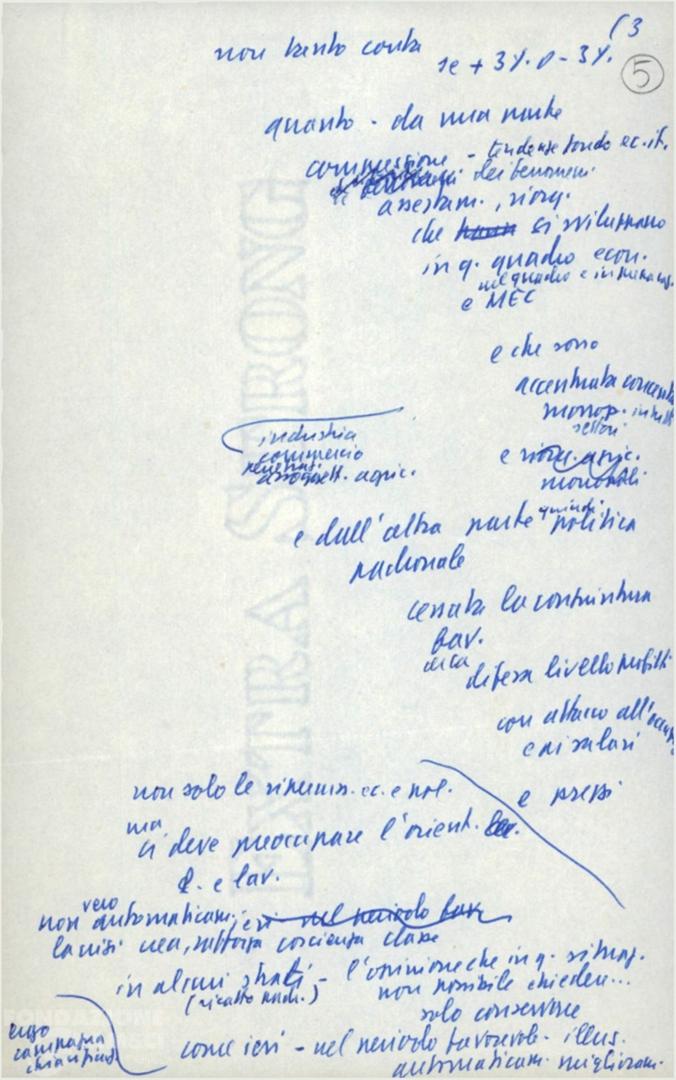 (3
5
non tanto conta se + 3%. o - 3%.
quanto - da una parte
connessione - tendenze fondo ec. it.
dei fenomeni
assestam., riorg.
che si sviluppano
in q. quadro econ.
nel quadro e in
e MEC
e che sono
accentuata concent
monop. in tutti
settori
industria
commercio
assogett. agric.
e riorg. agric.
monopoli
e dall'altra parte quindi politica
nazionale
cessata la congiuntura
fav.
difesa livello profitti
con attacco all'occup
e ai salari
e prezzi
non solo le ec. e pol.
ma
ci deve preoccupare l'orient.
e lav.
non vero automaticam. ieri nel periodo fav
la crisi crea, rafforza coscienza classe
in alcuni strati - l'opinione che in q. situaz.
(ricatto padr.) non possibile chiedere...
solo conservare
ergo
campagna
chiarific
come ieri - nel periodo favorevole - illus.
automaticam. miglioram.
EXTRA STRONG
FONDAZIONE